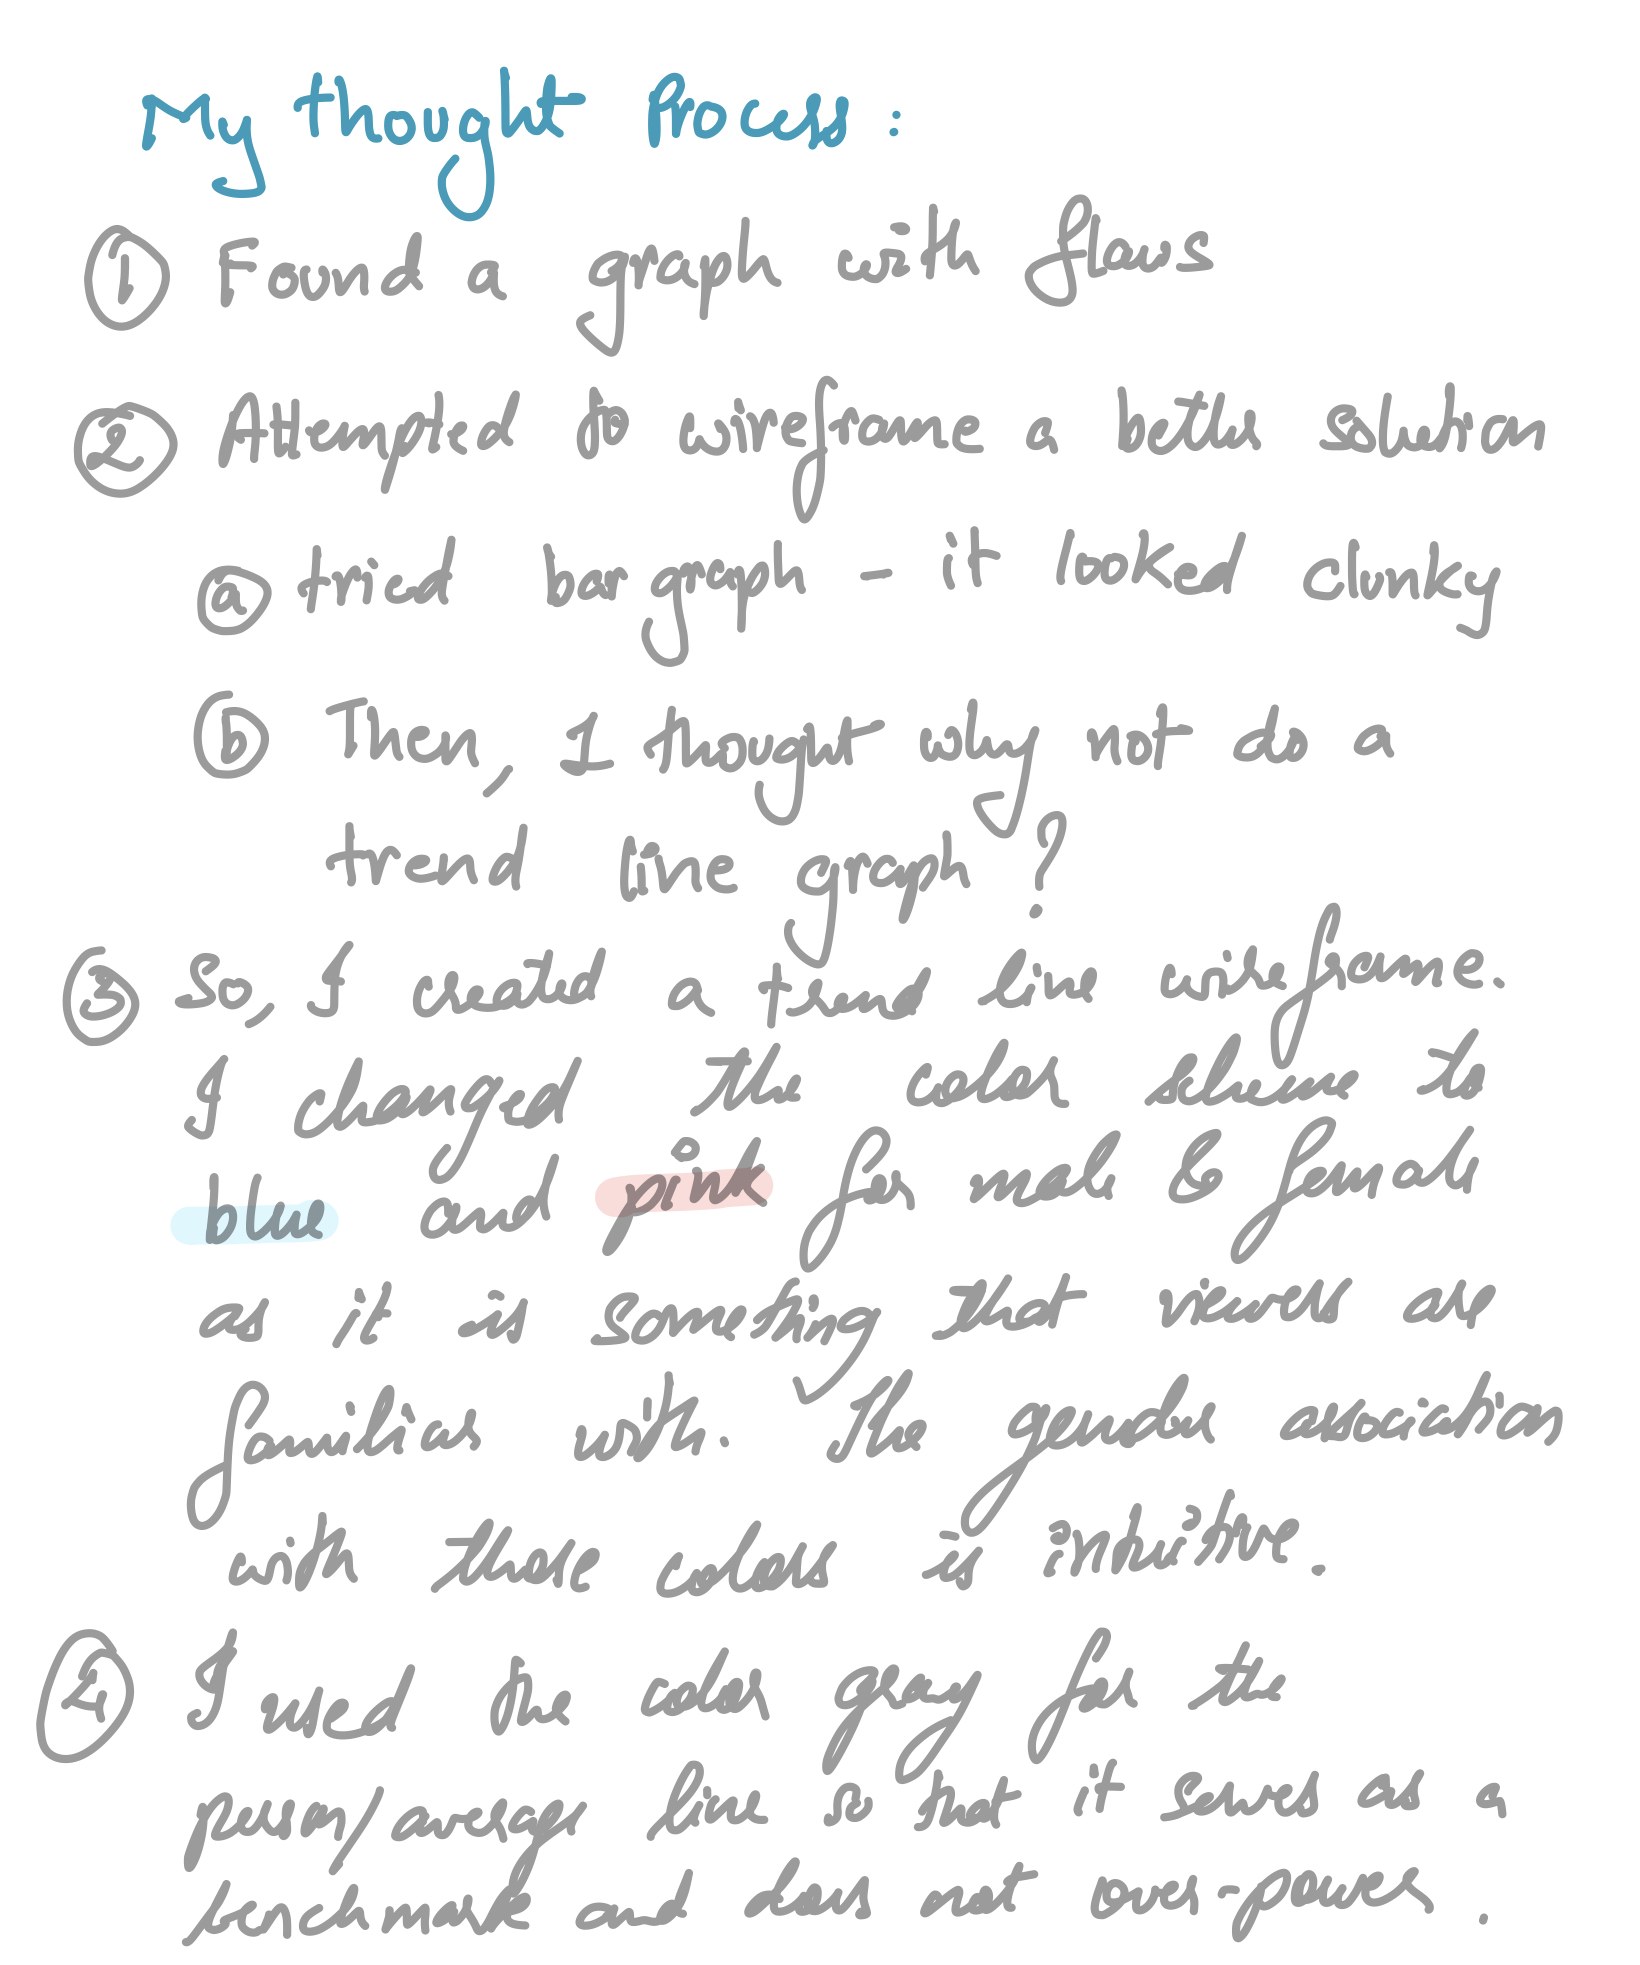 My thought Process:
① Found a graph with flaws
② Attempted to wireframe a better solution
ⓐ tried bar graph - it looked clunky
ⓑ Then, I thought why not do a
trend line graph?
③ So, I created a trend line wireframe.
I changed the color scheme to
blue and pink for male & female
as it is something that viewers are
familiar with. The gender association
with those colors is intuitive.
④ I used the color gray for the
person/average line so that it serves as a
benchmark and does not over-power.